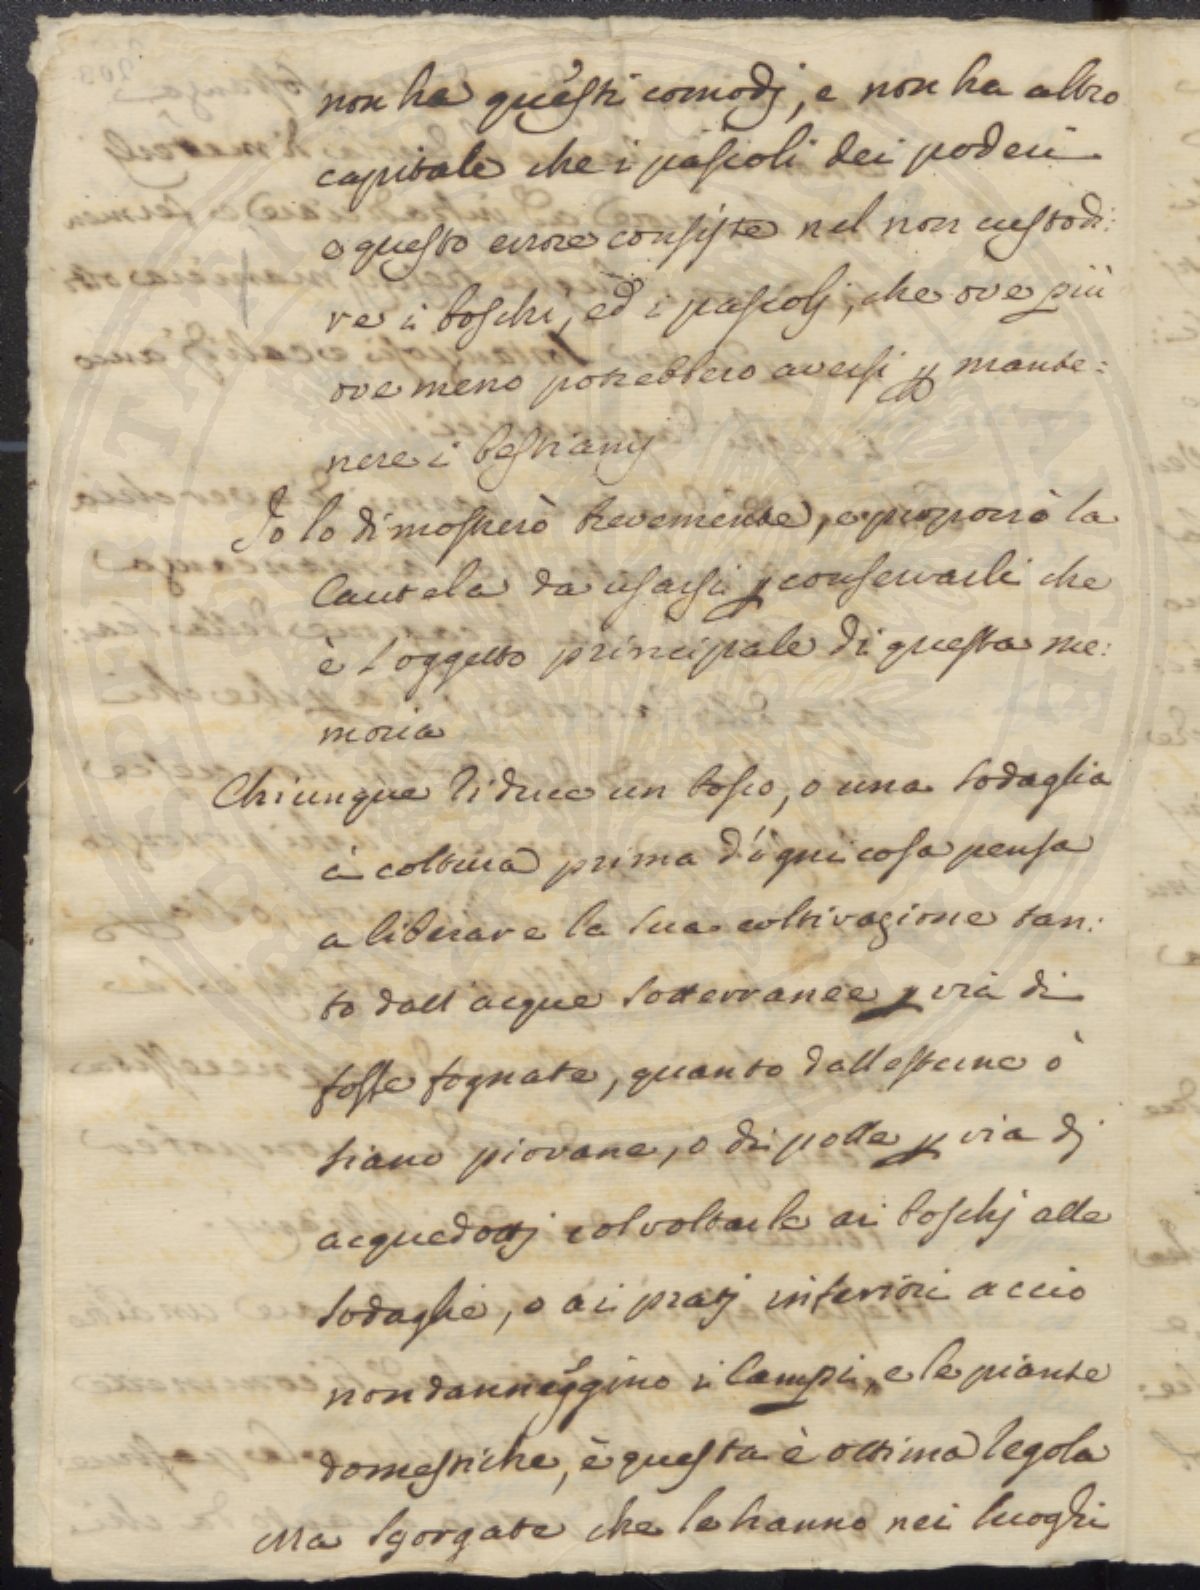 non ha questi comodj, e non ha altro
capitale che i pascoli dei poderi
e questo errore consiste nel non custodi:
re i boschi, ed i pascolj, che ove più
ove meno potrebbero aversi p mante:
nere i bestiamj
Io lo dimostrerò brevemente, e proporrò la
Cautela da usarsi p conservarli che
è l'oggetto principale di questa me:
moria
Chiunque riduce un bosco, o una sodaglia
à coltura prima d'ogni cosa pensa
a liberare la sua coltivazione tan:
to dall'acque sotterranee p via di
fosse fognate, quanto dall esterne ò
siano piovane, o di polle p via dj
acquedottj col voltarle ai boschj alle
sodaglie, o ai pratj inferiori acciò
non danneggino i Campi, e le piante
domestiche, è questa è ottima regola
Ma sgorgate che le hanno nei luoghi